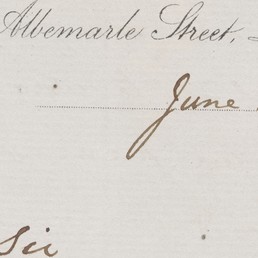 Albemarle Street,
June
Sir